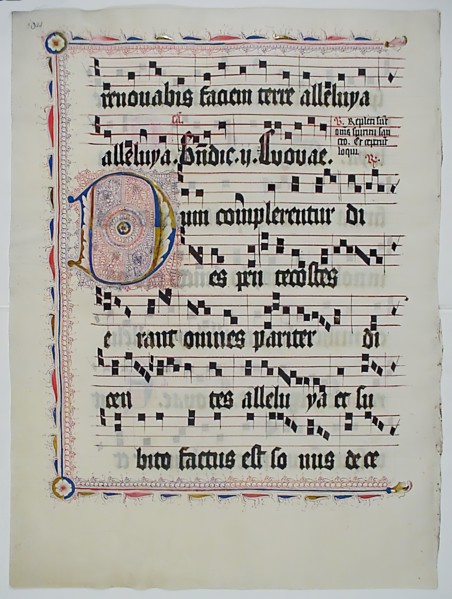 renouabis faciem terre alleluya
alleluya. Evovae.
Repleti sūt
spiritu san
cto. Et
loqui.
Dum complerentur di
es pen tecostes
e rant omnes pariter di
cen tes allelu ya et su
bito factus est so nus de ce